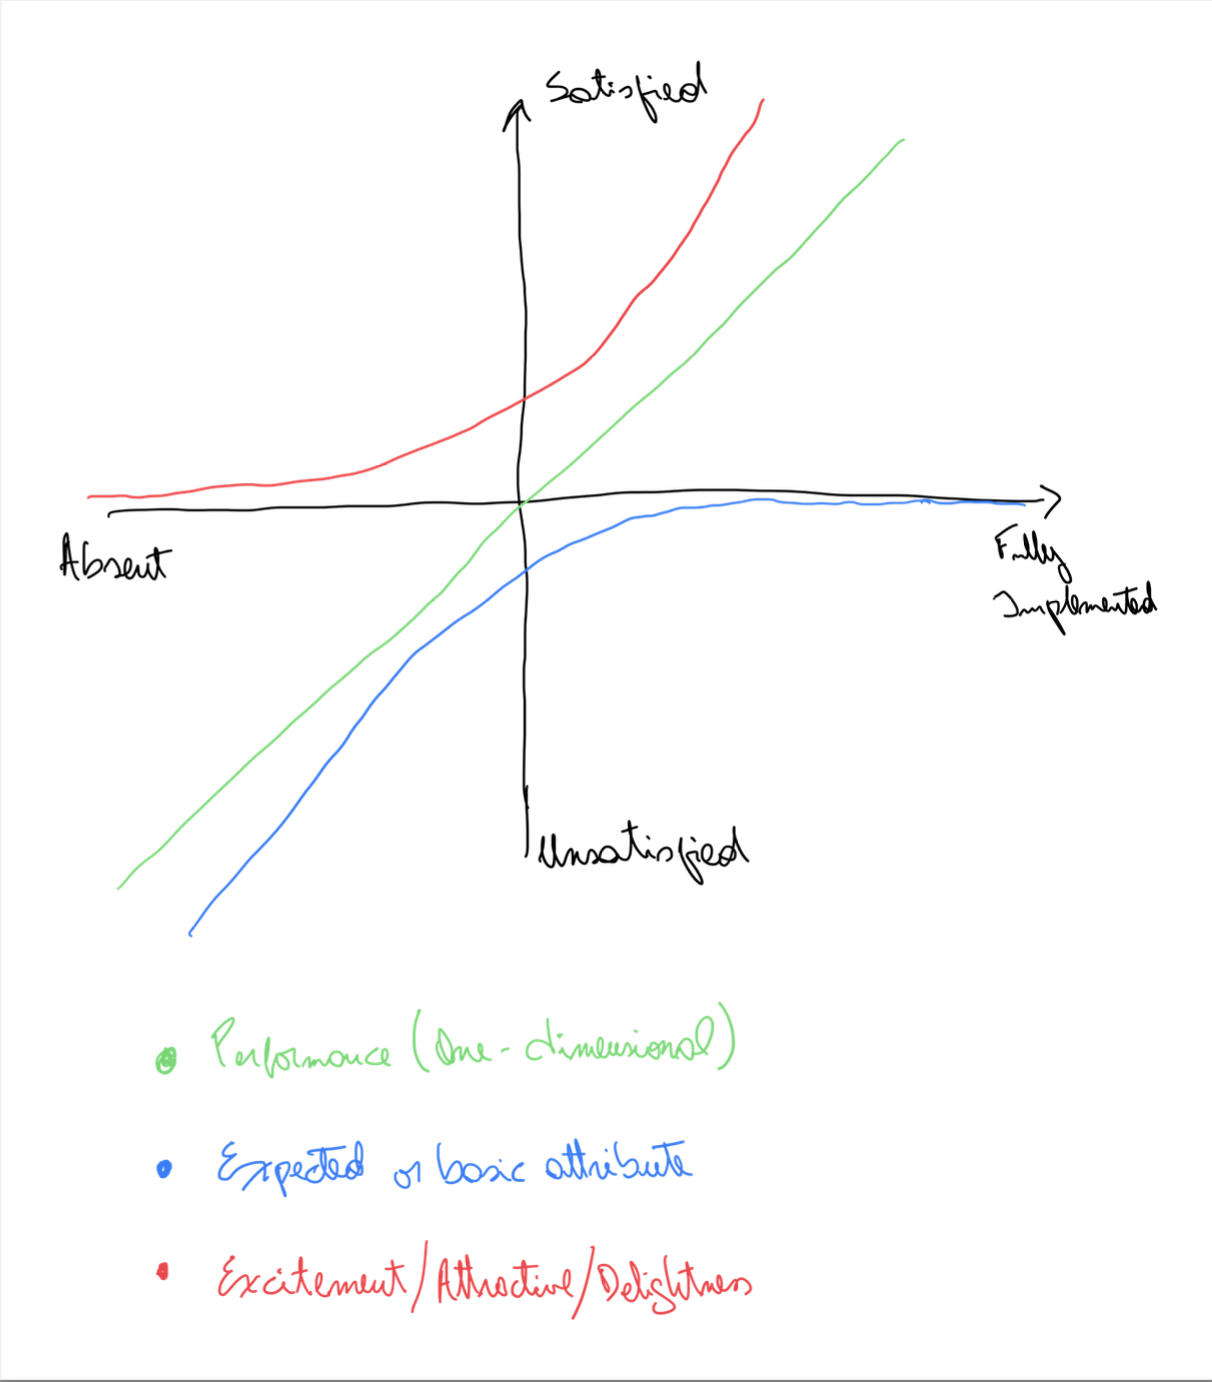 Satisfied
Absent
Fully
Implemented
Unsatisfied
Performance (One-dimensional)
Expected or basic attribute
Excitement/Attractive/Delightness